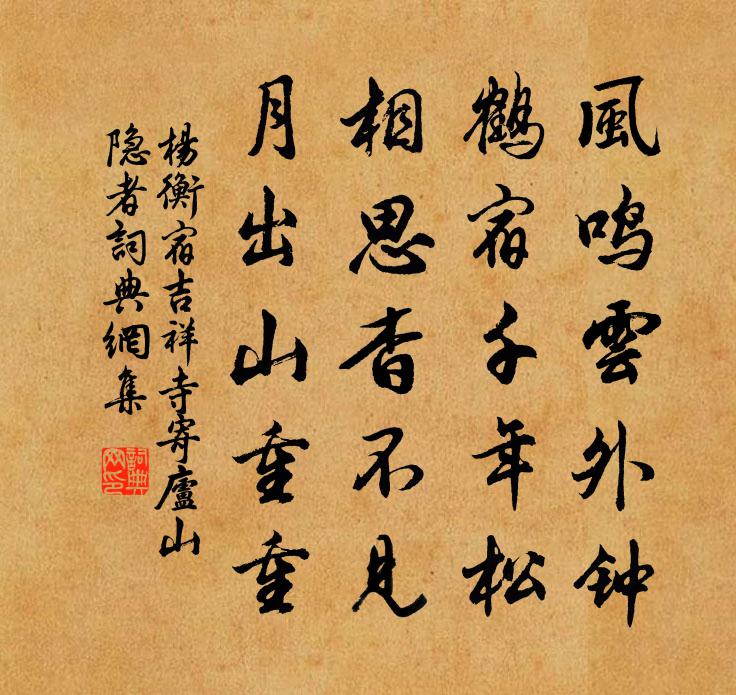 風鳴雲外钟
鶴宿千年松
相思杳不見
月出山重重
楊衡宿吉祥寺寄廬山
隐者詞典網集
詞典
网印